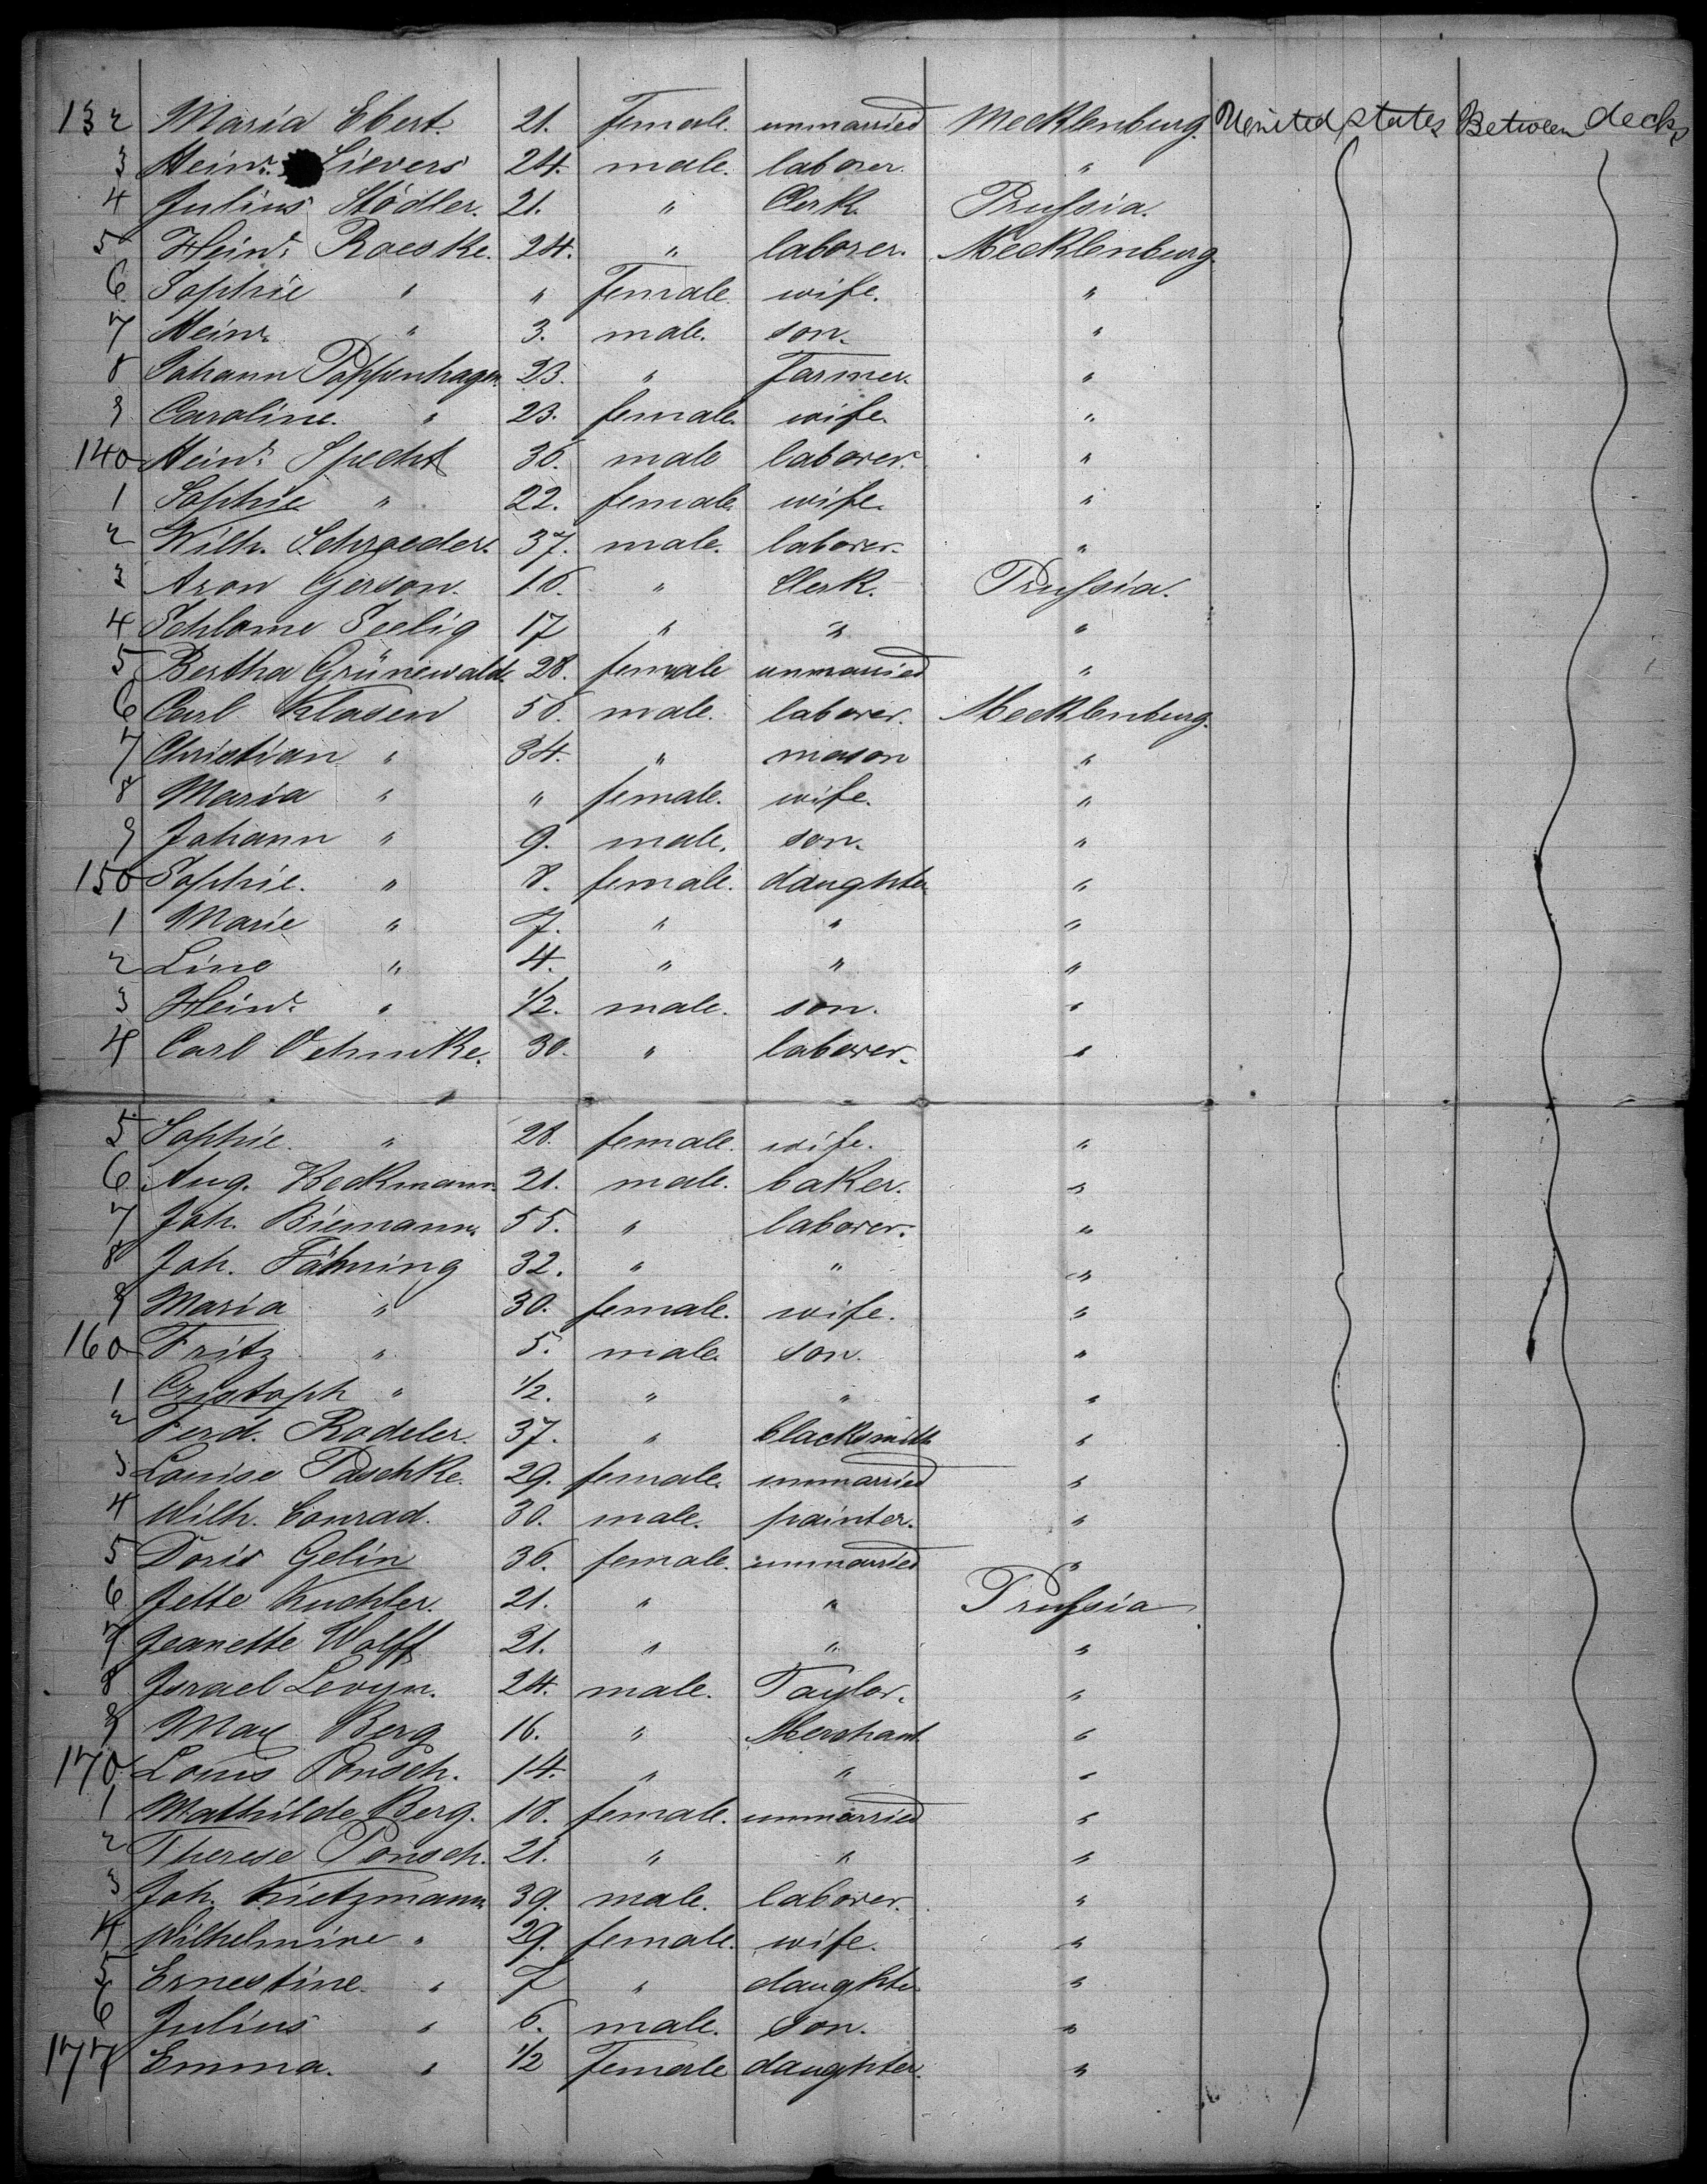 132 Maria Ebert. 21. female. unmarried Mecklenburg. United states Between decks
3 Heinr. Sievers 24. male. laborer. "
4 Julius Städler. 21. " Clerk. Prussia.
5 Heinr. Raeske. 24. " laborer. Mecklenburg
6 Sophie " " Female wife. "
7 Heinr. " 3. male. son. "
8 Johann Poppenhagen. 23. " Farmer. "
9 Caroline. " 23. female. wife. "
140 Heinr. Specht 36. male laborer. "
1 Sophie " 22. female. wife. "
2 Wilh. Schroeder. 37. male. laborer. "
3 Aron Gerson. 16. " Clerk. Prussia.
4 Schlome Seelig 17 " " "
5 Bertha Grünewald. 28. female unmarried "
6 Carl Klasen 56. male. laborer. Mecklenburg.
7 Christian " 34. " mason "
8 Maria " " female. wife. "
9 Johann " 9. male. son. "
150 Sophie. " 8. female. daughter. "
1 Marie " 7. " " "
2 Line " 4. " " "
3 Heinr. " 1/2. male. son. "
4 Carl Oehmke. 30. " laborer. "
5 Sophie. " 28. female. wife. "
6 Aug. Beckmann. 21. male. baker. "
7 Joh. Biemann. 55. " laborer. "
8 Joh. Fähring 32. " " "
9 Maria " 30. female. wife. "
160 Fritz " 5. male. son. "
1 Cristoph " 1/2. " " "
2 Ferd. Radeler. 37. " blacksmith "
3 Louise Paschke. 29. female. unmarried "
4 Wilh. Conrad. 30. male. painter. "
5 Doris Gelin 36. female. unmarried "
6 Jette Kuchler. 21. " " Prussia
7 Jeanette Wolff 21. " " "
8 Israel Levyn. 24. male. Taylor. "
9 Max Berg 16. " Merchant "
170 Louis Ponsch. 14. " " "
1 Mathilde Berg. 18. female. unmarried "
2 Therese Ponsch. 21. " " "
3 Joh. Kietzmann 39. male. laborer. "
4 Wilhelmine " 29. female. wife. "
5 Ernestine. " 7 " daughter "
6 Julius " 6. male. son. "
177 Emma. " 1/2 Female daughter. "